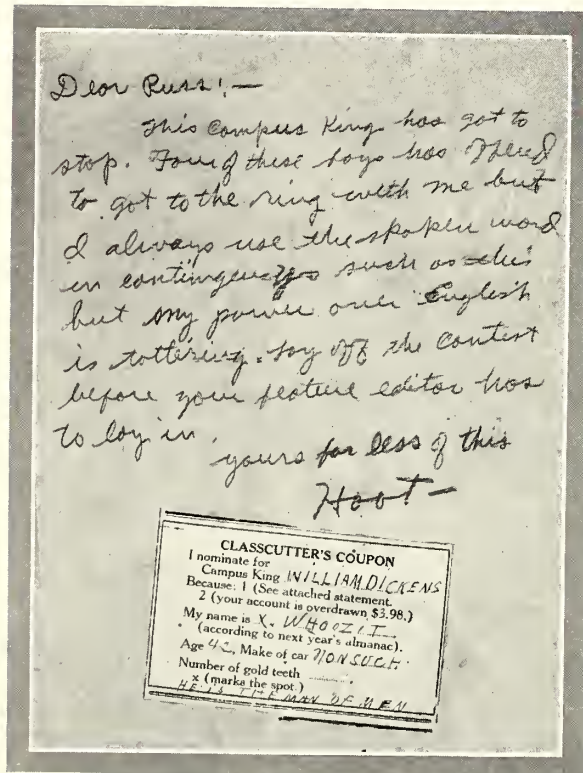 Dear Russ:—
This Campus King has got to
stop. Four of these boys has offered
to got to the ring with me but
I always use the spoken word
in such as this
but my power over English
is tottering. Lay off the contest
before your feature editor has
to lay in.
yours for less of this
Hoot—
CLASSCUTTER'S COUPON
I nominate for
Campus King WILLIAM DICKENS
Because: 1 (See attached statement.
2 (your account is overdrawn $3.98.)
My name is X. WHOOZIT
(according to next year's almanac).
Age 42, Make of car NONSUCH.
Number of gold teeth
x (marks the spot.)
HE IS THE MAN OF MEN